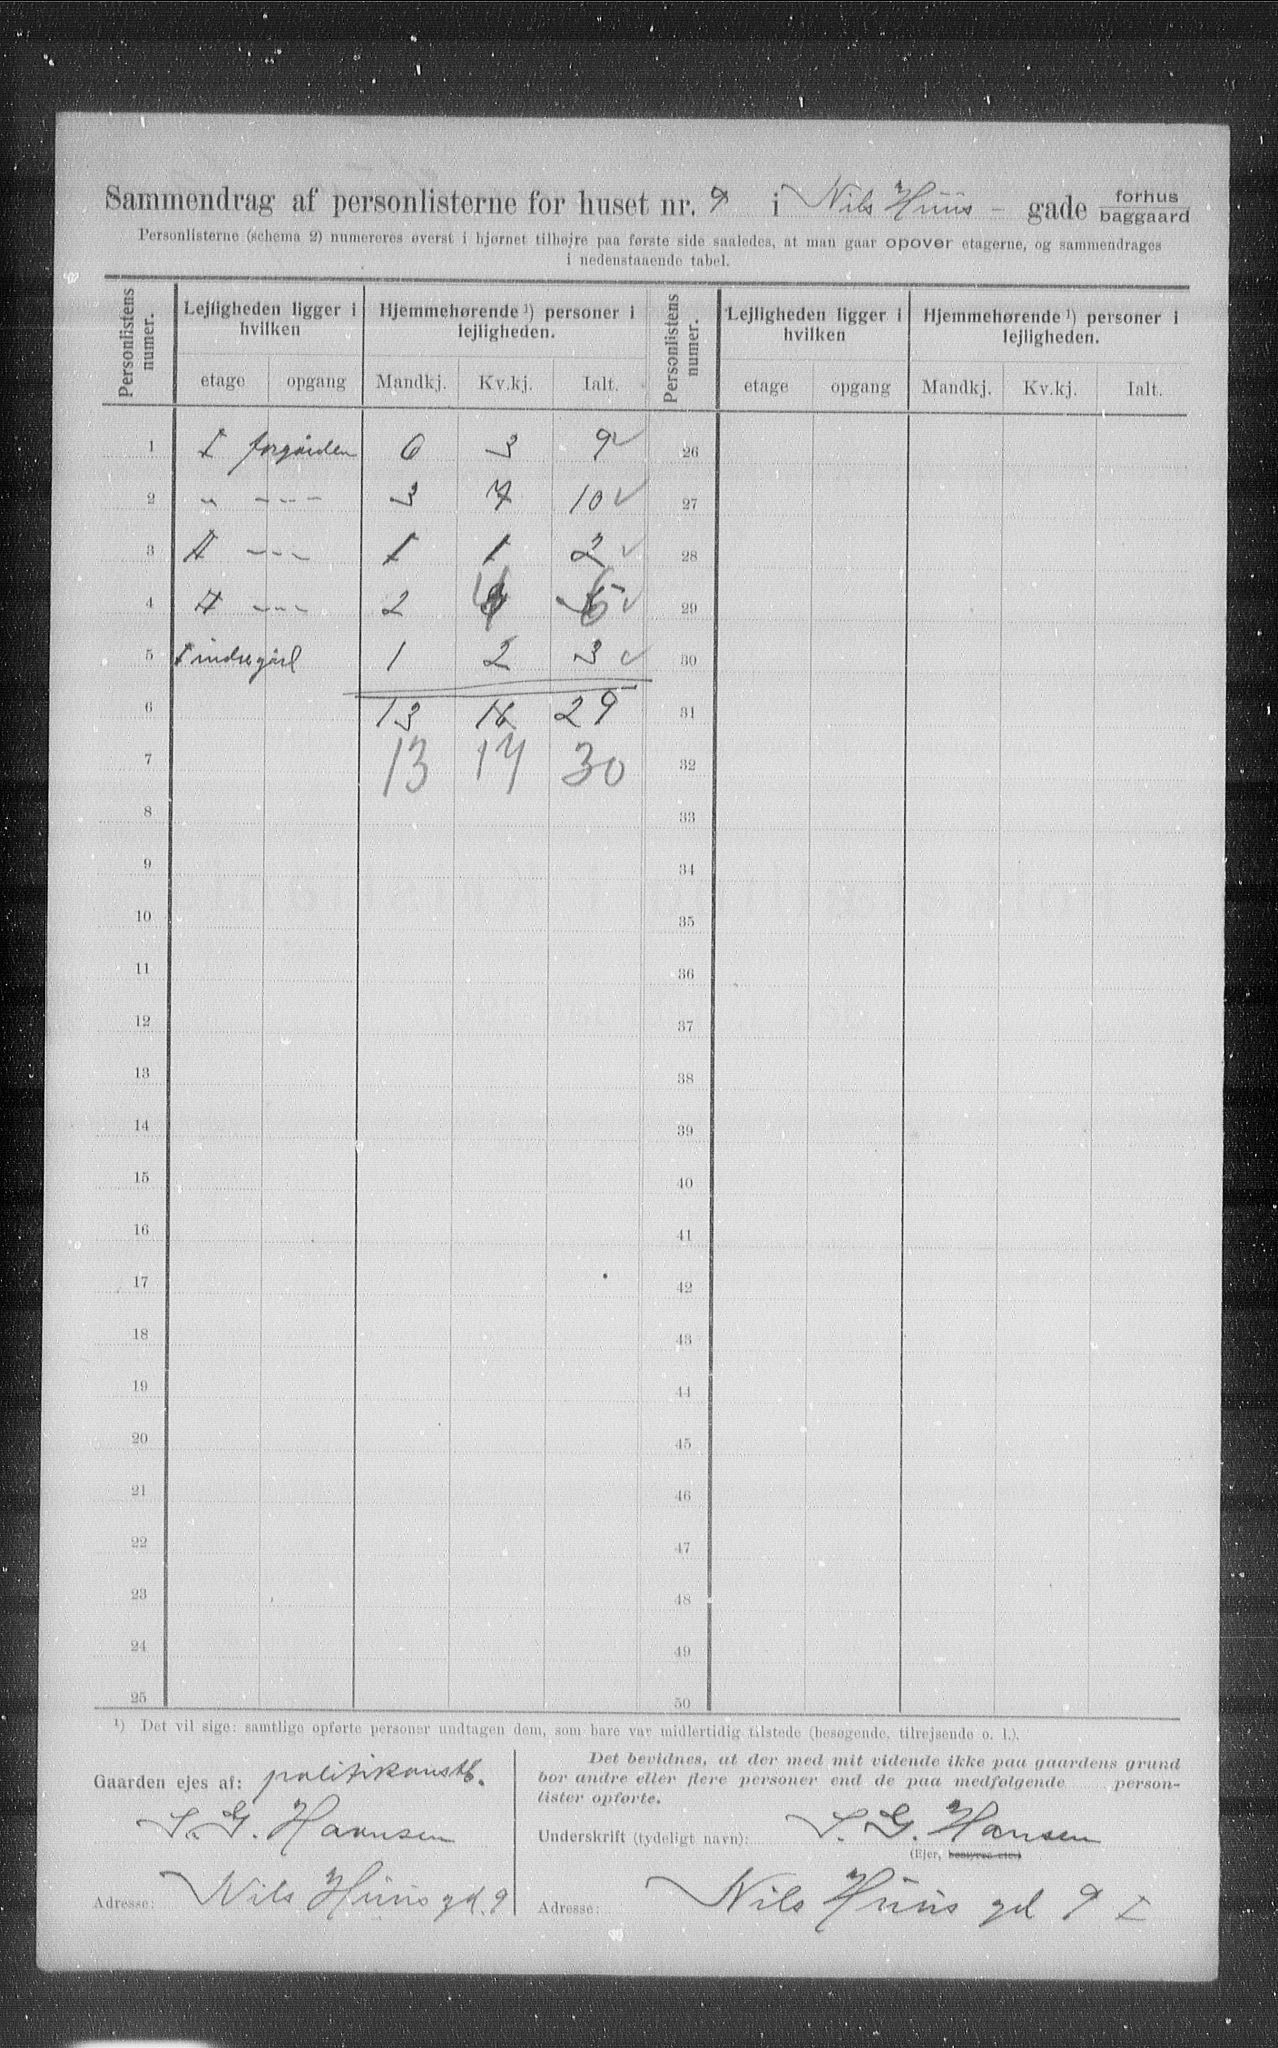 Sammendrag af personlisterne for huset nr. 9 i Nils Huus - gade forhus baggaard
Personlisterne (schema 2) numereres øverst i hjørnet tilhøjre paa første side saaledes, at man gaar opover etagerne, og sammendrages
i nedenstaaende tabel.
Personlistens numer. Lejligheden ligger i hvilken Hjemmehørende ¹) personer i lejligheden. Personlistens numer. Lejligheden ligger i hvilken Hjemmehørende ¹) personer i lejligheden.
etage opgang Mandkj. Kv.kj. Ialt. etage opgang Mandkj. Kv.kj. Ialt.
1 I forgården 6 3 9 ✓ 26
2 " - - - 3 7 10 ✓ 27
3 II - - - 1 1 2 ✓ 28
4 II - - - 2 4 6 ✓ 29
5 I indregård 1 2 3 ✓ 30
6 13 16 29 31
7 13 17 30 32
8 33
9 34
10 35
11 36
12 37
13 38
14 39
15 40
16 41
17 42
18 43
19 44
20 45
21 46
22 47
23 48
24 49
25 50
¹) Det vil sige: samtlige opførte personer undtagen dem, som bare var midlertidig tilstede (besøgende, tilrejsende o. l.).
Gaarden ejes af: politikonstb.
S. G. Hansen
Adresse: Nils Huus gd. 9
Det bevidnes, at der med mit vidende ikke paa gaardens grund
bor andre eller flere personer end de paa medfølgende person-
lister opførte.
Underskrift (tydeligt navn): S. G. Hansen
(Ejer, bestyrer etc.)
Adresse: Nils Huus gd 9 I